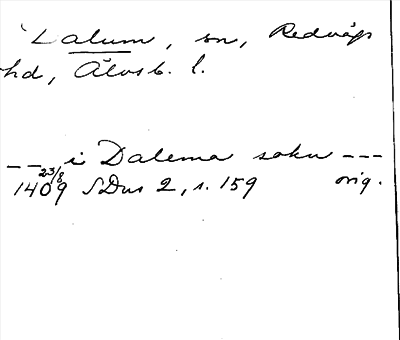 Dalum, sn, Redvägs
hd, Älvsb. l.
-- i Dalema sokn ---
1409 23/8 SDns 2, s. 159 orig.